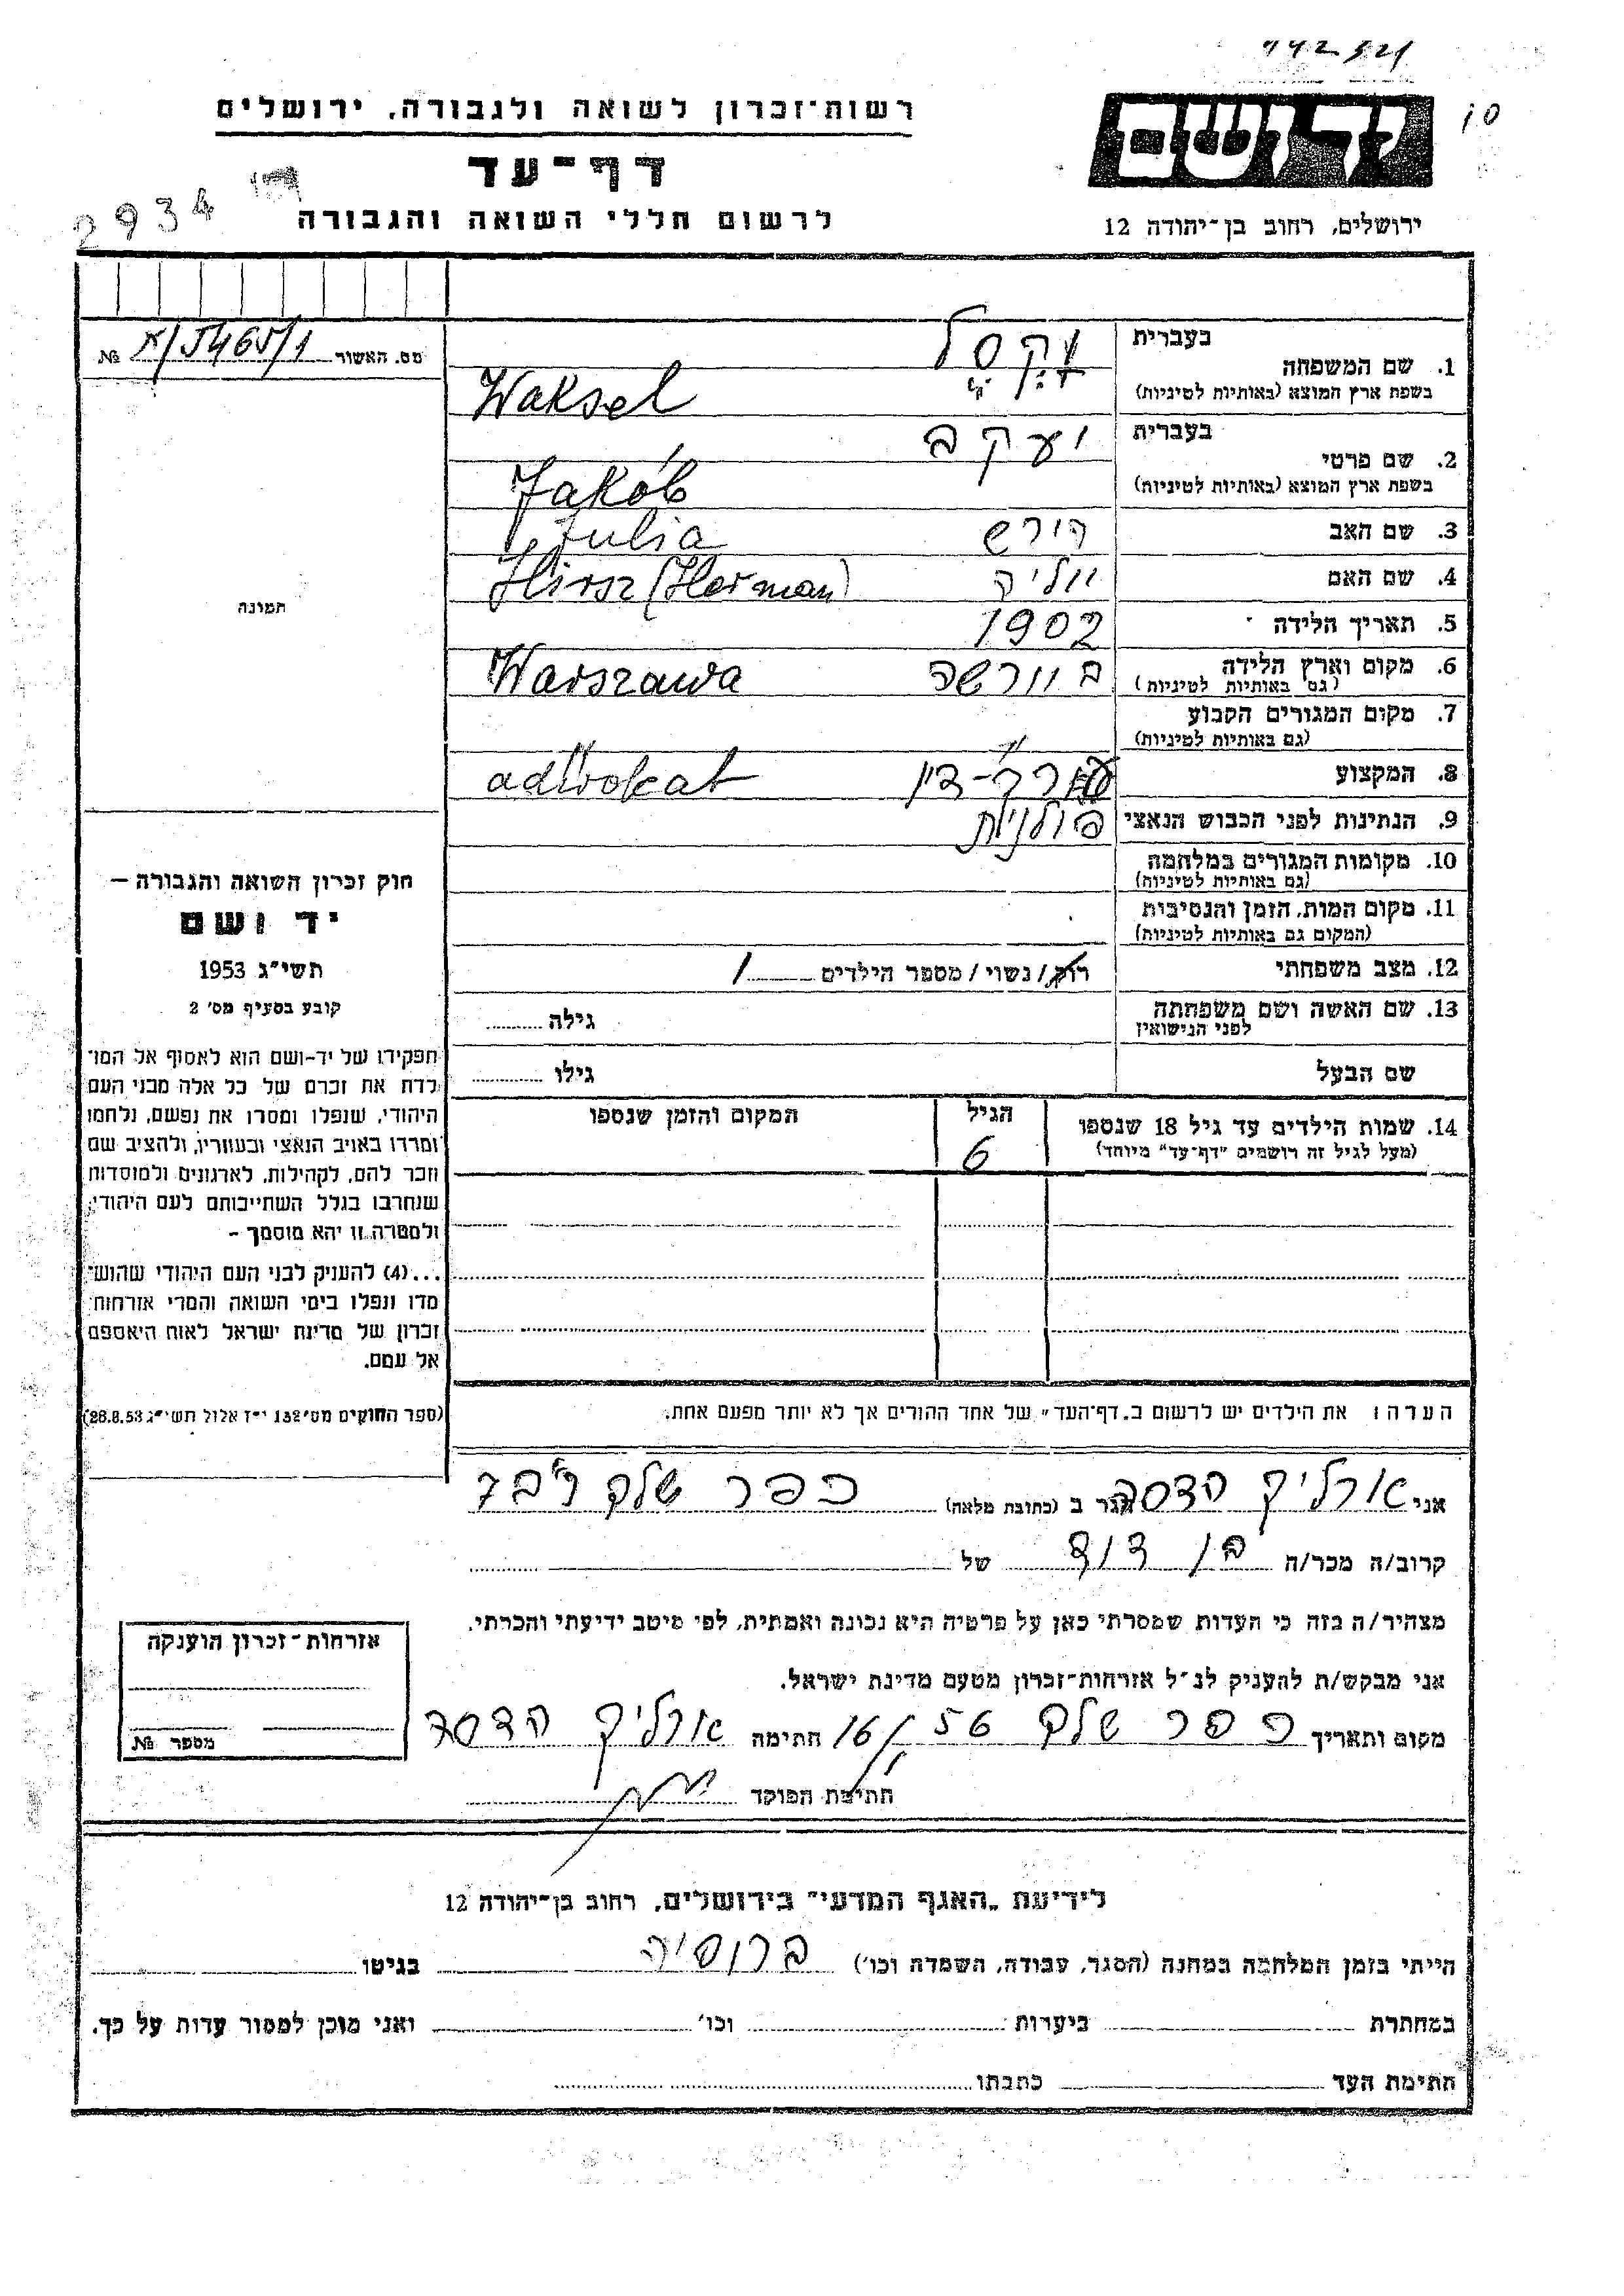 442521
10
רשות־זכרון לשואה ולגבורה, ירושלים
יד ושם
דף־עד
2934
לרשום חללי השואה והגבורה
ירושלים, רחוב בן־יהודה 12
מס. האשור № א/5465/1
בעברית
1. שם המשפחה וקסל
בשפת ארץ המוצא (באותיות לטיניות) Waksel
בעברית
2. שם פרטי יעקב
בשפת ארץ המוצא (באותיות לטיניות) Jakób
3. שם האב הירש Julia
4. שם האם יוליה Hirsz (Herman)
5. תאריך הלידה 1902
6. מקום וארץ הלידה בוורשה Warszawa
(גם באותיות לטיניות)
7. מקום המגורים הקבוע
(גם באותיות לטיניות)
8. המקצוע עורך-דין adwokat
9. הנתינות לפני הכבוש הנאצי פולנית
10. מקומות המגורים במלחמה
(גם באותיות לטיניות)
11. מקום המות, הזמן והנסיבות
(המקום גם באותיות לטיניות)
12. מצב משפחתי רוק/נשוי/מספר הילדים 1
13. שם האשה ושם משפחתה גילה
לפני הנישואין
שם הבעל גילו
14. שמות הילדים עד גיל 18 שנספו הגיל המקום והזמן שנספו
(מעל לגיל זה רושמים "דף־עד" מיוחד) 6
תמונה
חוק זכרון השואה והגבורה —
יד ושם
תשי"ג 1953
קובע בסעיף מס' 2
תפקידו של יד-ושם הוא לאסוף אל המו־
לדת את זכרם של כל אלה מבני העם
היהודי, שנפלו ומסרו את נפשם, נלחמו
ומרדו באויב הנאצי ובעוזריו, ולהציב שם
וזכר להם, לקהילות, לארגונים ולמוסדות
שנחרבו בגלל השתייכותם לעם היהודי,
ולמטרה זו יהא מוסמך —
...(4) להעניק לבני העם היהודי שהוש־
מדו ונפלו בימי השואה והמרי אזרחות־
זכרון של מדינת ישראל לאות היאספם
אל עמם.
(ספר החוקים מס' 132 י"ז אלול תשי"ג 28.8.53)
הערה: את הילדים יש לרשום ב„דף־העד" של אחד ההורים אך לא יותר מפעם אחת.
אני ארליך הדסה הגר ב (כתובת מלאה) כפר שלם
קרוב/ה מכר/ה בן דוד של
מצהיר/ה בזה כי העדות שמסרתי כאן על פרטיה היא נכונה ואמתית, לפי מיטב ידיעתי והכרתי.
אני מבקש/ת להעניק לנ"ל אזרחות־זכרון מטעם מדינת ישראל.
מקום ותאריך כפר שלם 56 16/ חתימה ארליך הדסה
חתימת הפוקד
אזרחות־זכרון הוענקה
מספר №
לידיעת „האגף המדעי" בירושלים, רחוב בן־יהודה 12
הייתי בזמן המלחמה במחנה (הסגר, עבודה, השמדה וכו') ברוסיה בגיטו
במחתרת ביערות וכו' ואני מוכן למסור עדות על כך.
חתימת העד כתבתו